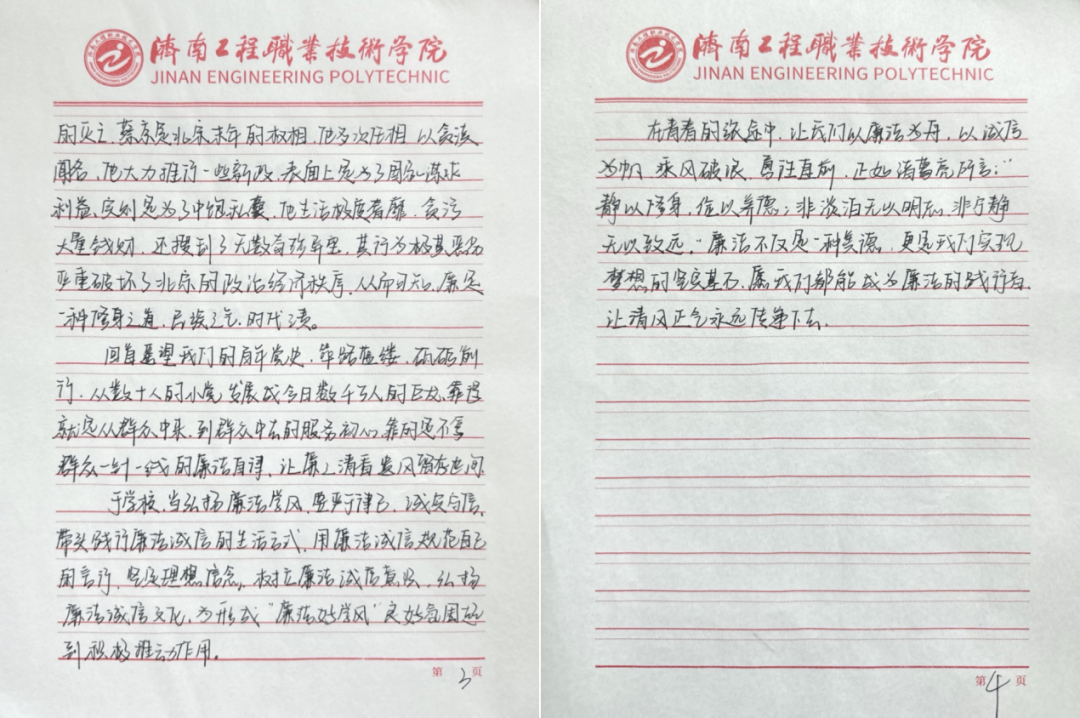 濟南工程職業技術学院
JINAN ENGINEERING POLYTECHNIC
的灭亡,蔡京是北宋末年的权相,他多次任相,以贪渎
闻名,他大力推行一些新政,表面上是为了国家谋求
利益,实则是为了中饱私囊,他生活极度奢靡,贪污
大量钱财,还搜刮了无数奇珍异宝,其行为极其恶劣
严重破坏了北宋的政治经济秩序,从而可知,廉是
一种修身之道,民族之气,时代之颂。
回首遥望我们的百年党史,筚路蓝缕,砥砺前
行,从数十人的小党发展成今日数千万人的巨党,靠得
就是从群众中来,到群众中去的服务初心,靠的是不拿
群众一针一线的廉洁自律,让廉之清香发风留存世间
于学校,当弘扬廉洁学风,要严于律己,诚实与信,
带头践行廉洁诚信的生活方式,用廉洁诚信规范自己
的言行,坚定理想信念,树立廉洁诚信意识,弘扬
廉洁诚信文化,为形成"廉洁好学风"良好氛围起
到积极推动作用。
第3页
濟南工程職業技術学院
JINAN ENGINEERING POLYTECHNIC
在青春的旅途中,让我们以廉洁为舟,以诚信
为帆,乘风破浪,勇往直前,正如诸葛亮所言:"
静以修身,俭以养德;非淡泊无以明志,非宁静
无以致远。"廉洁不仅是一种美德,更是我们实现
梦想的坚实基石,愿我们都能成为廉洁的践行者,
让清风正气永远传递下去.
第4页